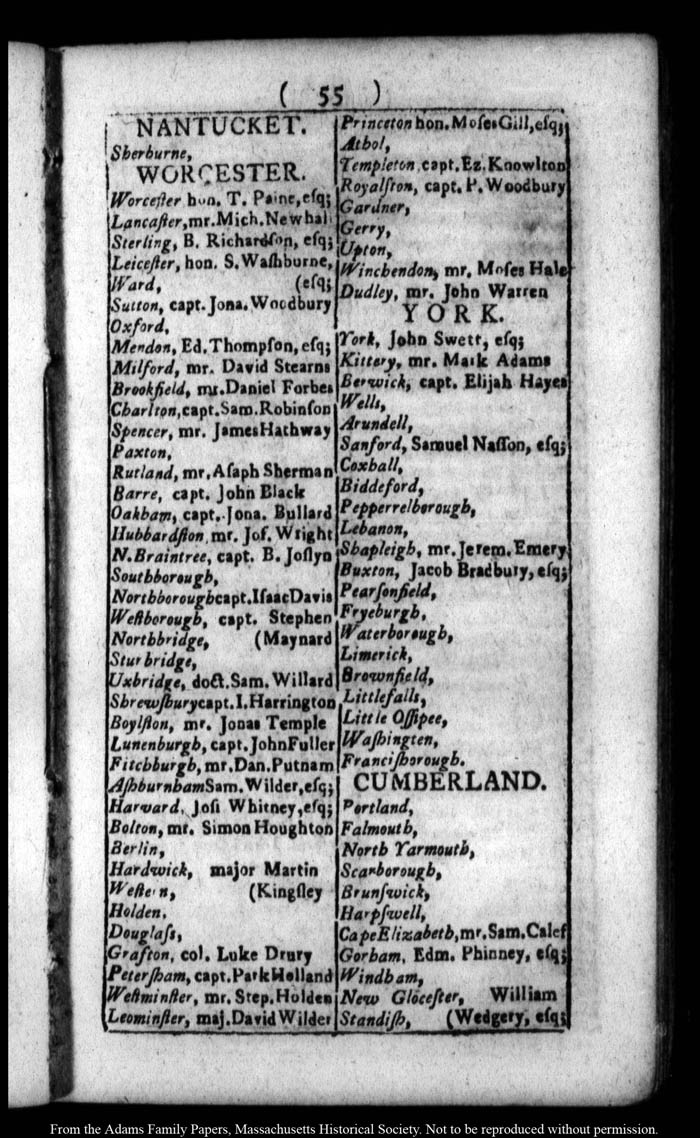 ( 55 )
NANTUCKET.
Sherburne,
WORCESTER.
Worceſter hon. T. Paine,eſq;
Lancaſter,mr.Mich.Newhal
Sterling, B. Richardſon, eſq;
Leiceſter, hon. S.Waſhburne,
Ward, (eſq;
Sutton, capt.Jona.Woodbury
Oxford,
Mendon, Ed.Thompſon,eſq;
Milford, mr. David Stearns
Brookfield, mr.Daniel Forbes
Charlton,capt.Sam.Robinſon
Spencer, mr. JamesHathway
Paxton,
Rutland, mr.Aſaph Sherman
Barre, capt. John Black
Oakham, capt. Jona. Bullard
Hubbardſton, mr. Joſ. Wright
N.Braintree, capt. B. Joſlyn
Southborough,
Northboroughcapt.IſaacDavis
Weſtborough, capt. Stephen
Northbridge, (Maynard
Sturbridge,
Uxbridge, doct.Sam. Willard
Shrewſburycapt.I.Harrington
Boylſton, mr. Jonas Temple
Lunenburgh, capt.JohnFuller
Fitchburgh, mr.Dan.Putnam
AſhburnhamSam.Wilder,eſq;
Harvard, Joſi Whitney,eſq;
Bolton, mr. Simon Houghton
Berlin,
Hardwick, major Martin
Weſtern, (Kingſley
Holden,
Douglaſs,
Grafton, col. Luke Drury
Peterſham, capt.ParkHolland
Weſtminſter, mr. Step.Holden
Leominſter, maj.David Wilder
Princeton hon.MoſesGill,eſq;
Athol,
Templeton,capt.Ez.Knowlton
Royalſton, capt. P. Woodbury
Gardner,
Gerry,
Upton,
Winchendon, mr. Moſes Hale
Dudley, mr. John Warren
YORK.
York, John Swett, eſq;
Kittery, mr. Mark Adams
Berwick, capt. Elijah Hayes
Wells,
Arundell,
Sanford, Samuel Naſſon, eſq;
Coxhall,
Biddeford,
Pepperrelborough,
Lebanon,
Shapleigh, mr.Jerem.Emery,
Buxton, Jacob Bradbury, eſq;
Pearſonfield,
Fryeburgh,
Waterborough,
Limerick,
Brownfield,
Littlefalls,
Little Oſſipee,
Waſhington,
Franciſborough.
CUMBERLAND.
Portland,
Falmouth,
North Yarmouth,
Scarborough,
Brunſwick,
Harpſwell,
CapeElizabeth,mr.Sam.Calef
Gorham, Edm. Phinney, eſq;
Windham,
New Gloceſter, William
Standiſh, (Wedgery, eſq;
From the Adams Family Papers, Massachusetts Historical Society. Not to be reproduced without permission.